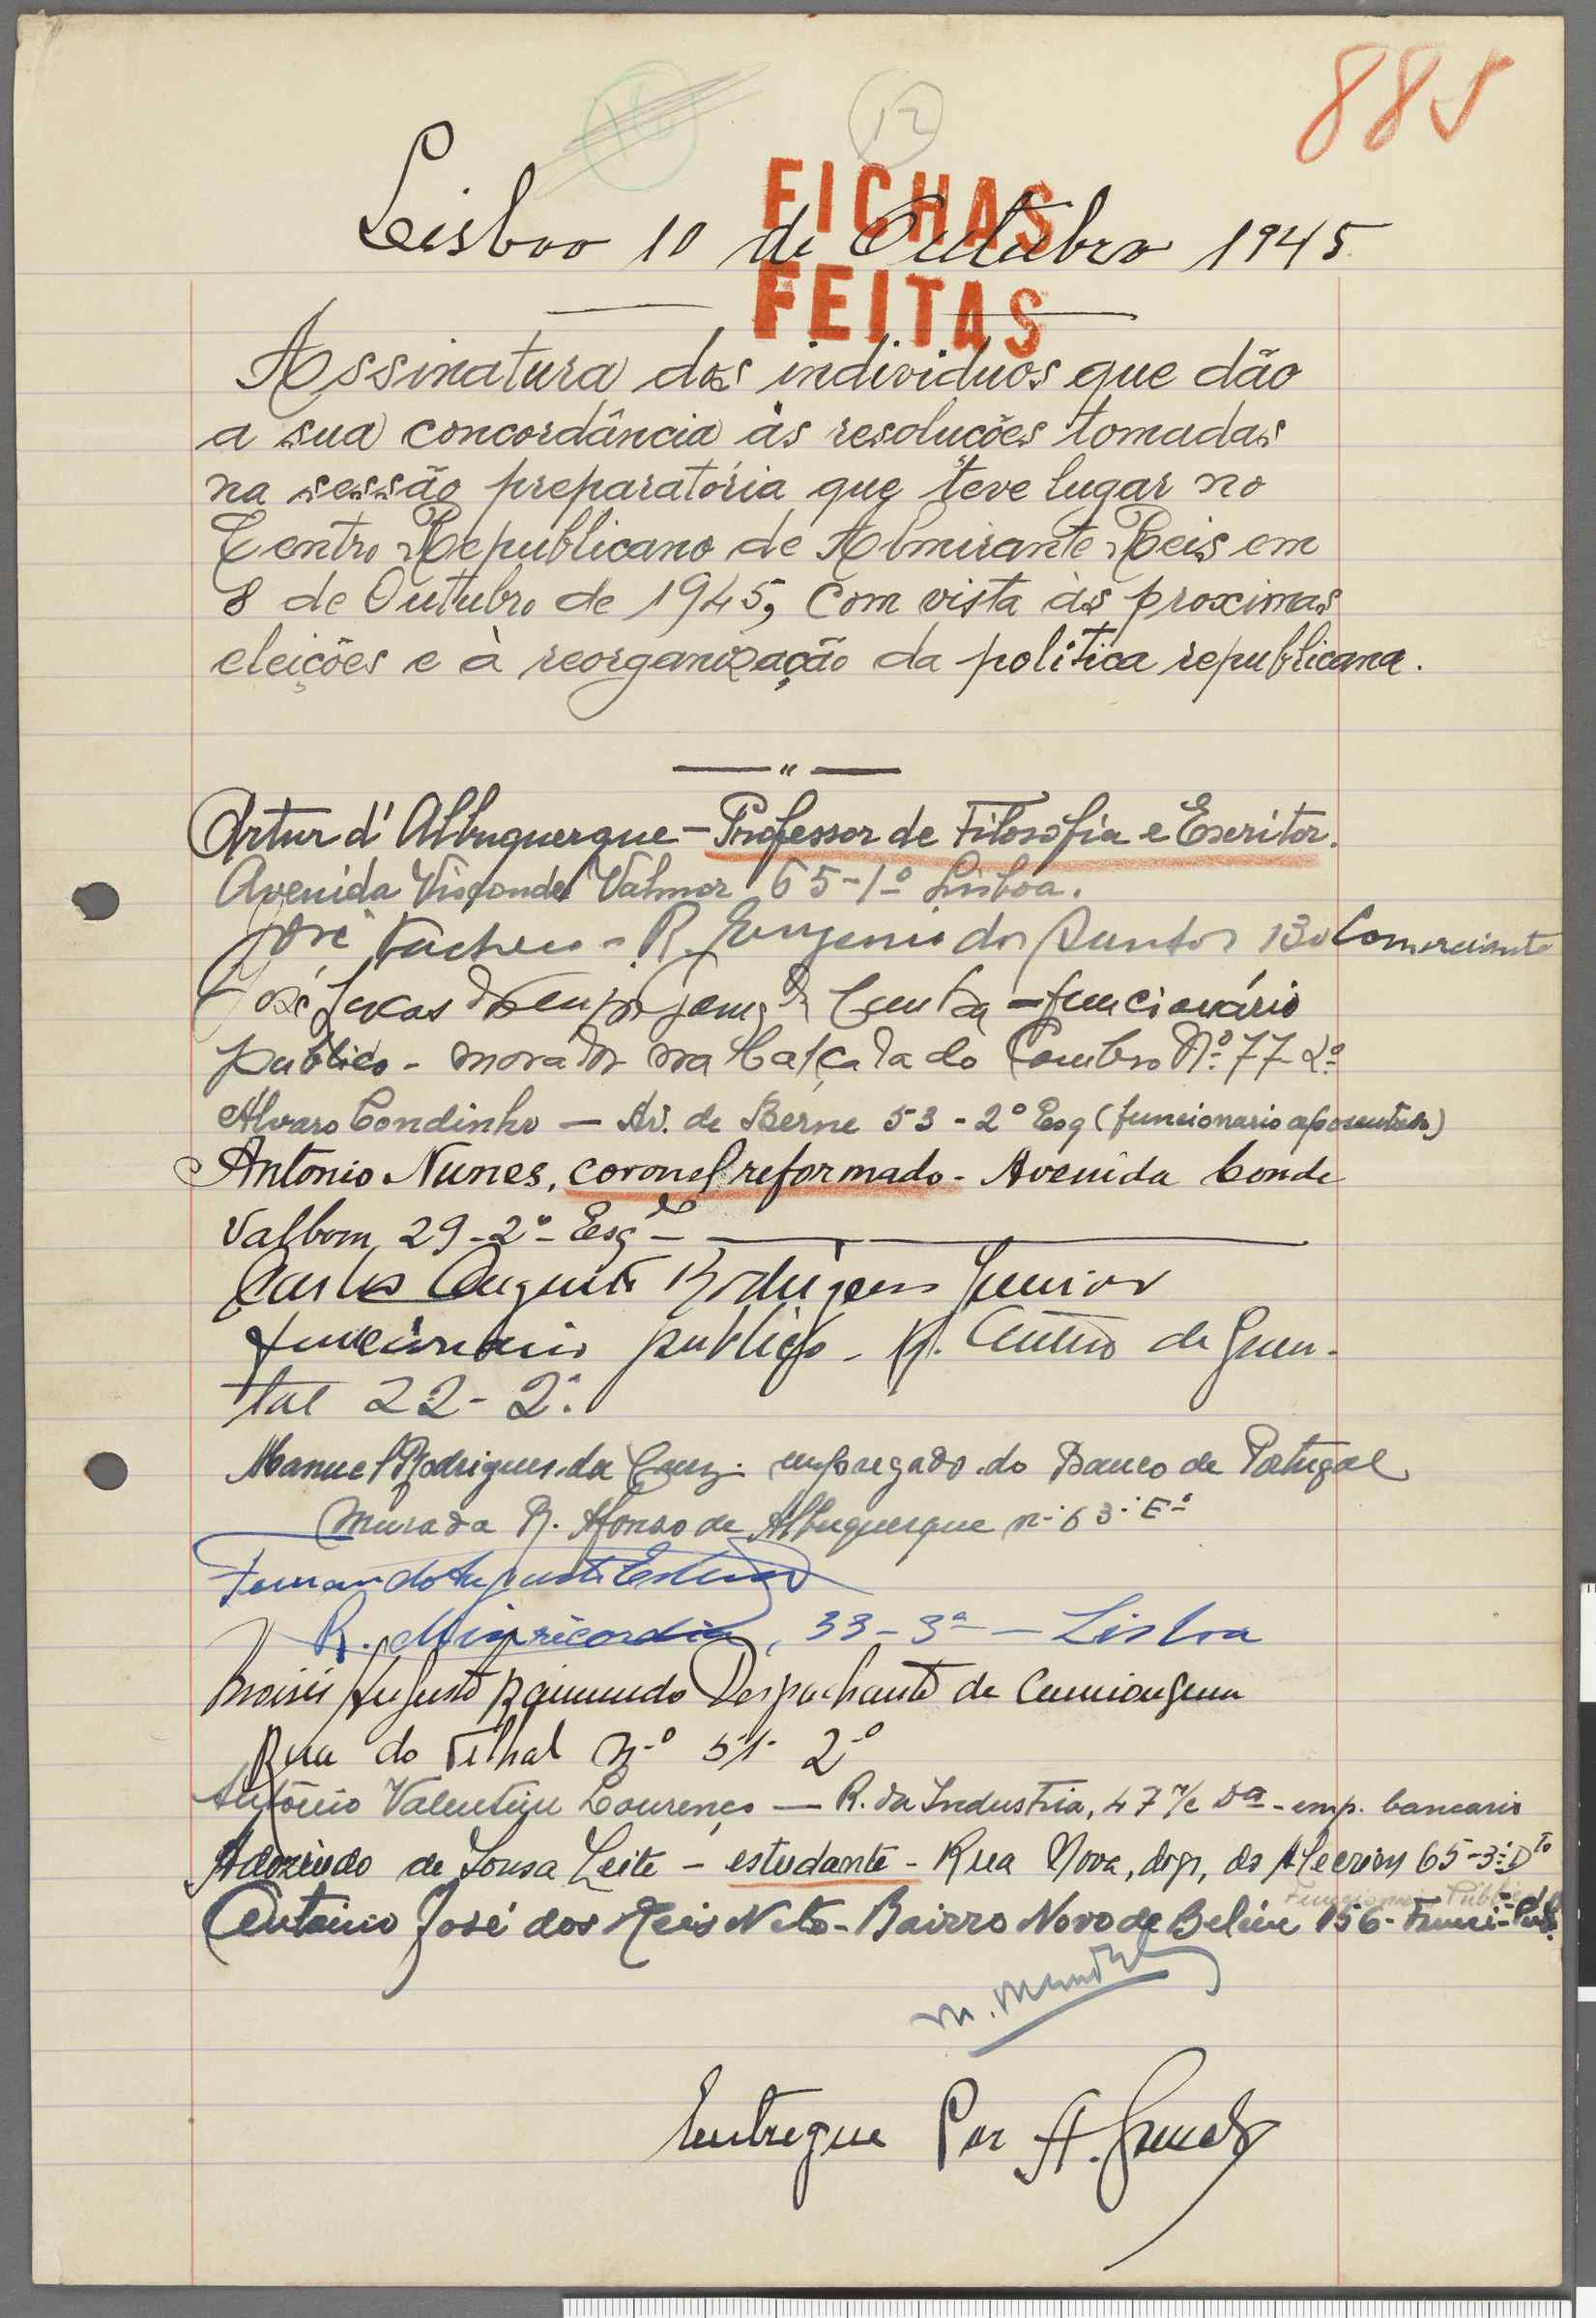 885
12
Lisboa 10 de Outubro 1945
FICHAS
FEITAS
Assinatura dos individuos que dão
a sua concordância ás resoluções tomadas
na sessão preparatória que teve lugar no
Centro Republicano de Almirante Reis em
8 de Outubro de 1945, com vista às proximas
eleições e à reorganização da política republicana.
Artur d'Albuquerque - Professor de Filosofia e Escritor.
Avenida Visconde Valmor 65-1º Lisboa.
José Pacheco - R. Eugenio dos Santos 130 Comerciante
José Lucas Gomes da Cunha - funcionário
publico - morador na Calçada do Combro Nº 77-2º
Alvaro Condinho — Av. de Berne 53 - 2º Esq (funcionario aposentado)
Antonio Nunes, coronel reformado - Avenida Conde
Valbom, 29-2º Esq
Carlos Augusto Rodrigues Junior
funcionario publico - R. Antero de Quen-
tal 22-2º.
Manuel Rodrigues da Cruz. empregado do Banco de Portugal
Murada R. Afonso de Albuquerque nº 63
Fernando Augusto
R. Misericordia, 33-3º — Lisboa
Moisés Augusto Raimundo Despachante de Camionagem
Rua do Telhal Nº 51- 2º
António Valentim Lourenço — R. da Industria, 47 r/c Dª - emp. bancario
Adozindo de Sousa Leite - estudante - Rua Nova, do Alecrim 65-3º Dto
Funcionario Público
Antonio José dos Reis Neto - Bairro Novo de Belem 156-
M. Mendes
Entregue Por A.